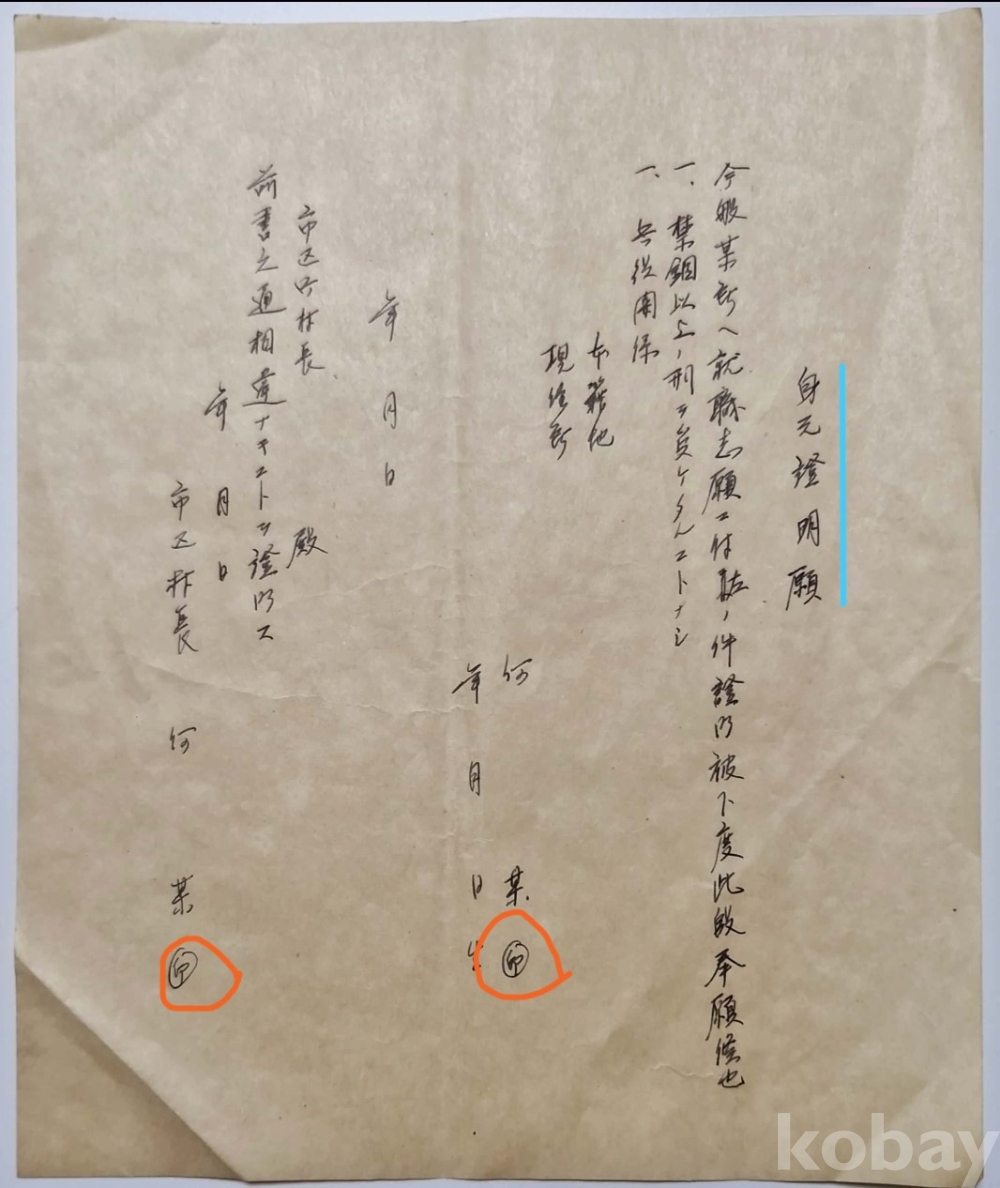 身元證明願
今般某所へ就職志願ニ付左ノ件證明被下度此段奉願候也
一、禁錮以上ノ刑ヲ負ケタルコトナシ
一、兵役関係
本籍地
現住所
何 某 印
年 月 日 生
年 月 日
市区町村長 殿
前書之通相違ナキコトヲ證明ス
年 月 日
市区村長 何 某 印
kobay